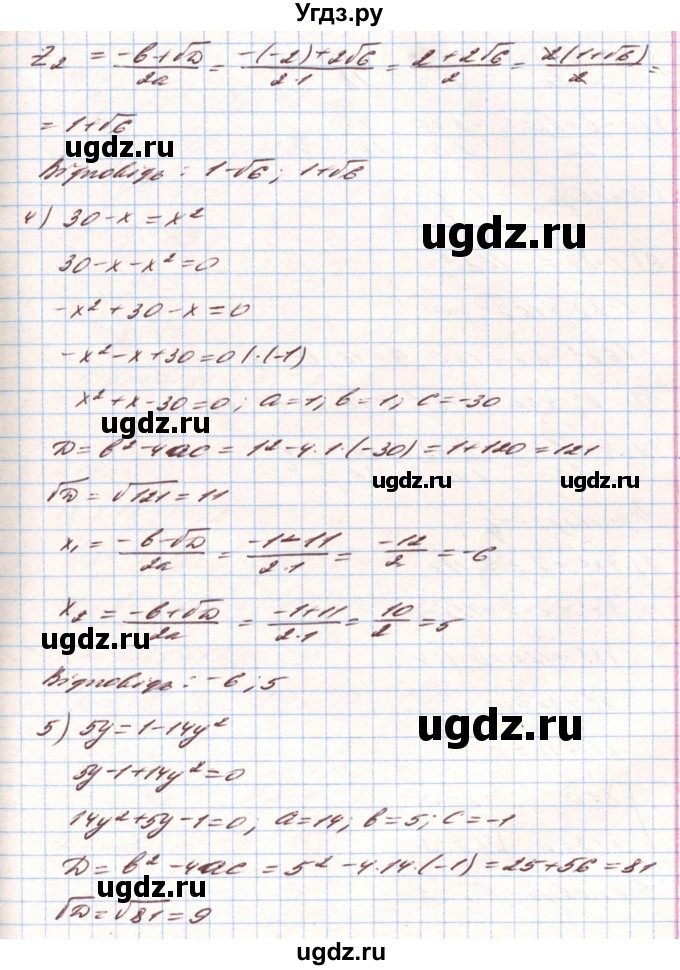 Угдз.ру
z₂ = (-b+√D)/2a = (-(-2)+2√6)/(2·1) = (2+2√6)/2 = 2(1+√6)/2 =
= 1+√6
ugdz.ru
Відповідь: 1-√6; 1+√6
4) 30-x = x²
ugdz.ru
30-x-x²=0
-x²+30-x=0
-x²-x+30=0 |·(-1)
x²+x-30=0; a=1; b=1; c=-30
ugdz.ru
D = b²-4ac = 1²-4·1·(-30) = 1+120 = 121
ugdz.ru ugdz.ru
√D = √121 = 11
x₁ = (-b-√D)/2a = (-1-11)/(2·1) = -12/2 = -6
x₂ = (-b+√D)/2a = (-1+11)/(2·1) = 10/2 = 5
ugdz.ru
Відповідь: -6; 5
5) 5y = 1-14y²
ugdz.ru
5y-1+14y²=0
14y²+5y-1=0; a=14; b=5; c=-1
D = b²-4ac = 5²-4·14·(-1) = 25+56 = 81
ugdz.ru ugdz.ru
√D = √81 = 9
ugdz.ru